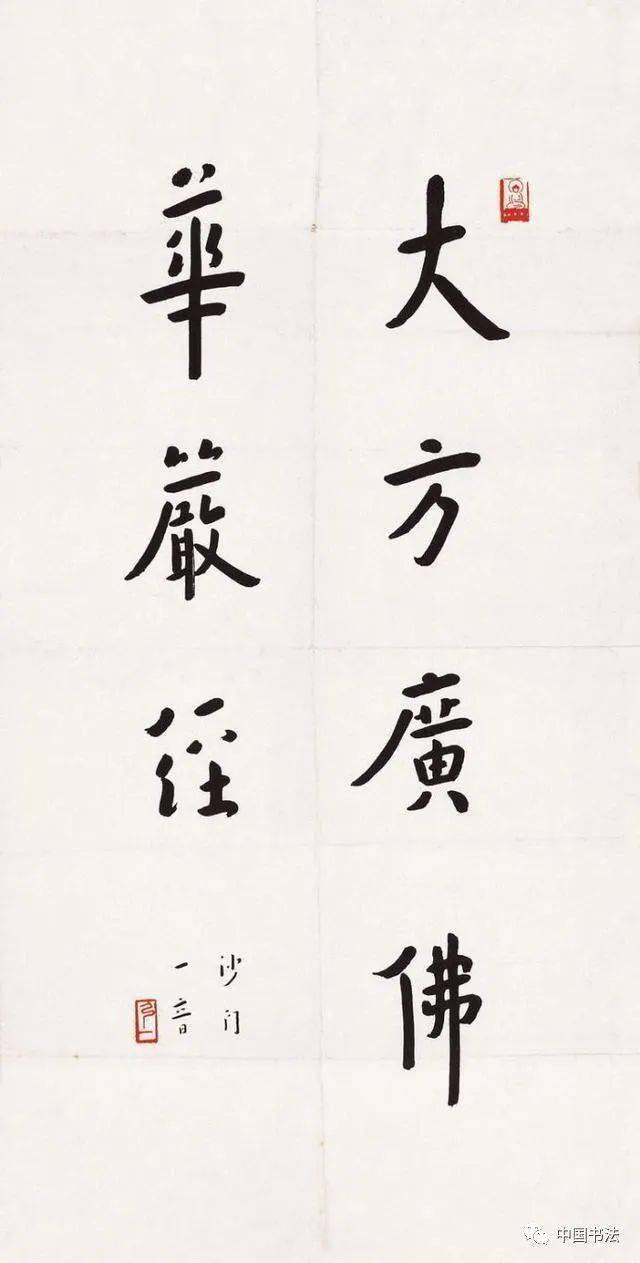 大方廣佛
華嚴經
沙门
一音
中国书法